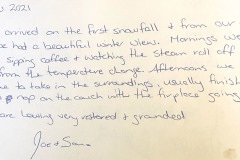 2021
arrived on the first snowfall & from our
had a beautiful winter view. Mornings we
sipping coffee & watching the steam roll off
from the temperature change. Afternoons we
to take in the surroundings, usually finish
nap on the couch with the fireplace going
are leaving very restored & grounded
Joe & Sam